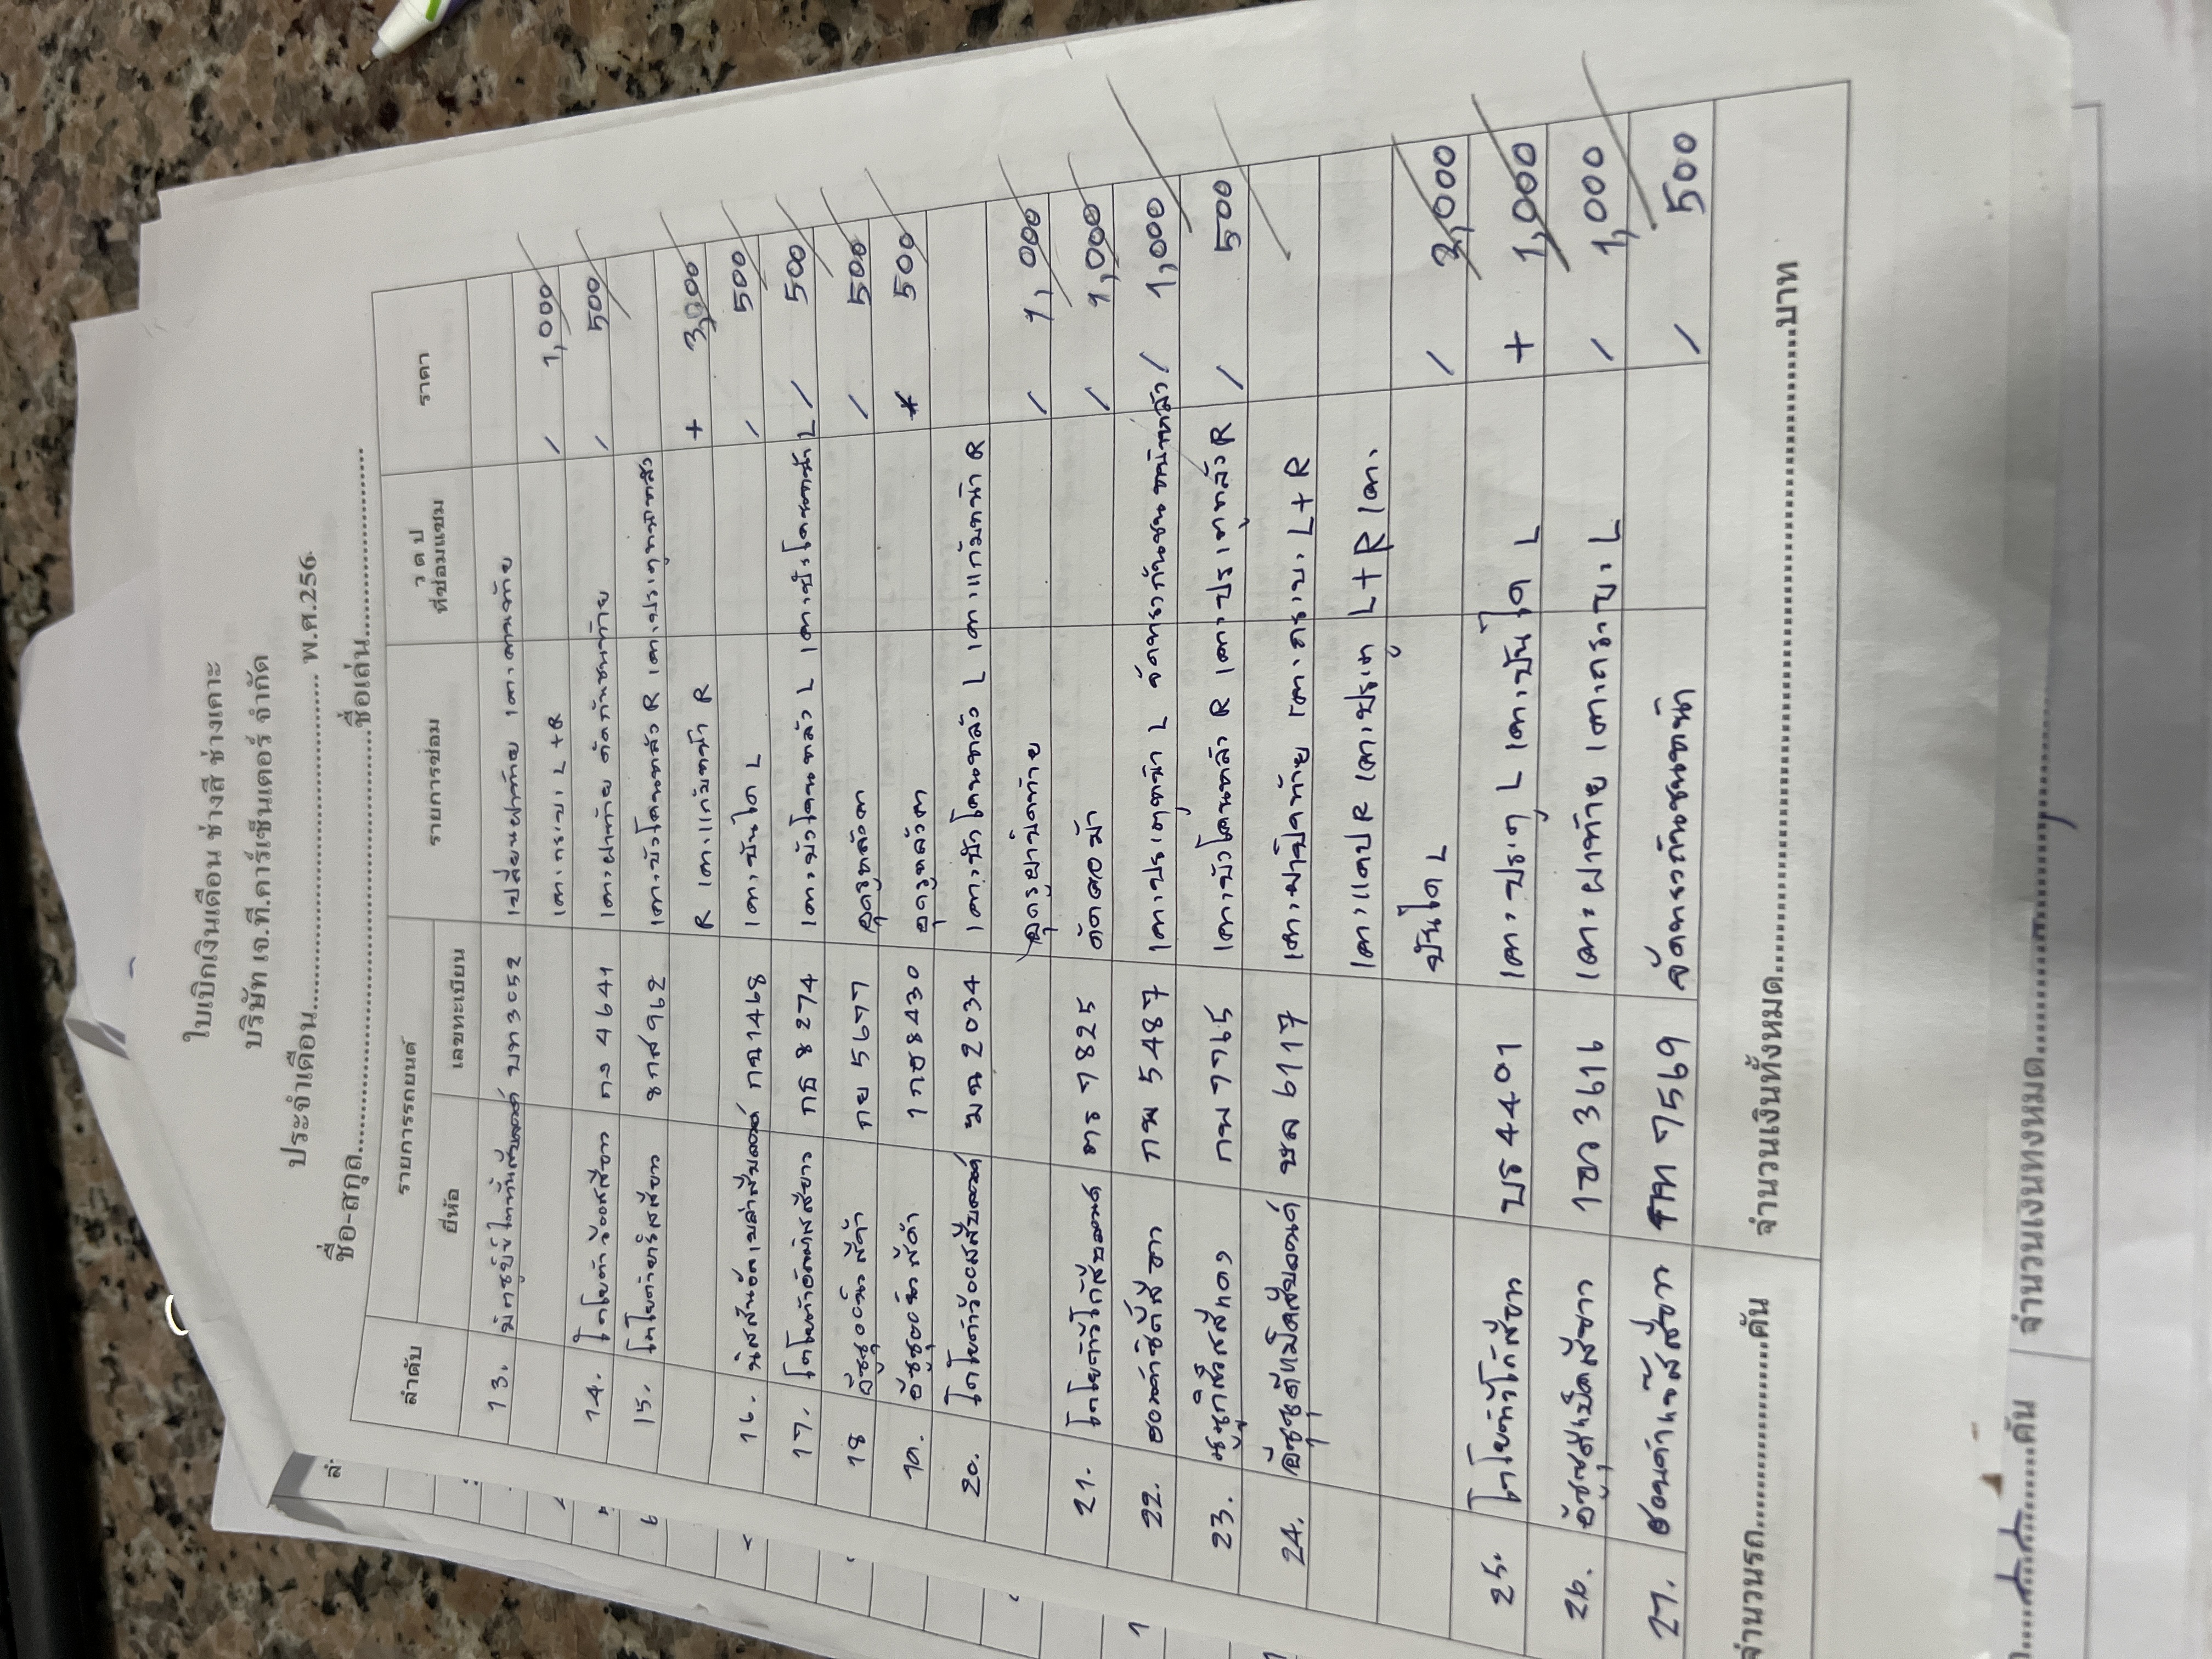 ใบเบิกเงินเดือน ช่างสี ช่างเคาะ
บริษัท เจ.ที.คาร์เซ็นเตอร์ จำกัด
ประจำเดือน.................................... พ.ศ.256
ชื่อ-สกุล.....................................................ชื่อเล่น...........................
ลำดับ รายการรถยนต์ รายการซ่อม ว ด ป ที่ซ่อมแซม ราคา
ยี่ห้อ เลขทะเบียน
13. บท 3052 เปลี่ยนฝาท้าย เคาะ
เคาะกระบะ L+R / 1,000
14. โตโยต้าวีออสสีขาว กง 4641 เคาะฝาท้าย ดัดกันชนท้าย / 500
15. โตโยต้ายาริสสีขาว ขกส 962 เคาะบังโคลนหลัง R เคาะประตู
R เคาะแก้มหน้า R + 3,000
16. นิสสันอัลเมล่าสีบรอนด์ กฉ 1468 เคาะบันได L / 500
17. โตโยต้าอัลติสสีขาว กธ 8274 เคาะบังโคลนหลัง L L / 500
18 อีซูซุ สีดำ กย 5677 / 500
19. อีซูซุ สีดำ 1กช 8430 * 500
20. โตโยต้าวีออสสีบรอนด์ 2034 เคาะบังโคลนหลัง L เคาะแก้มหน้า R
ฝาปิดท้าย / 1,000
21. โตโยต้าวีโก้สีบรอนด์ 7825 ดัดคอม้า / 1,000
22. ฮอนด้าซิตี้สีขาว กพ 5487 เคาะประตูหน้า L / 1,000
23. สีแดง กพ 7765 เคาะบังโคลนหลัง R เคาะประตูหลัง R / 500
24. อีซูซุดีแม็คสีบรอนด์ ชล 6117 เคาะฝาปิดท้าย เคาะกระบะ L+R
เคาะแคป R เคาะประตู L+R เคาะ
บันได L / 3,000
25. โตโยต้าวีโก้สีขาว บร 4401 เคาะประตู L เคาะบันได L + 1,000
26. อีซูซุดีแม็คสีขาว 1ขว 3616 เคาะฝาท้าย เคาะกระบะ L / 1,000
27. ฮอนด้าแจ๊สสีขาว 7569 ดัดกันชนหน้า / 500
จำนวนรถ....................คัน จำนวนเงินทั้งหมด........................................................................บาท
คัน จำนวนเงินทั้งหมด